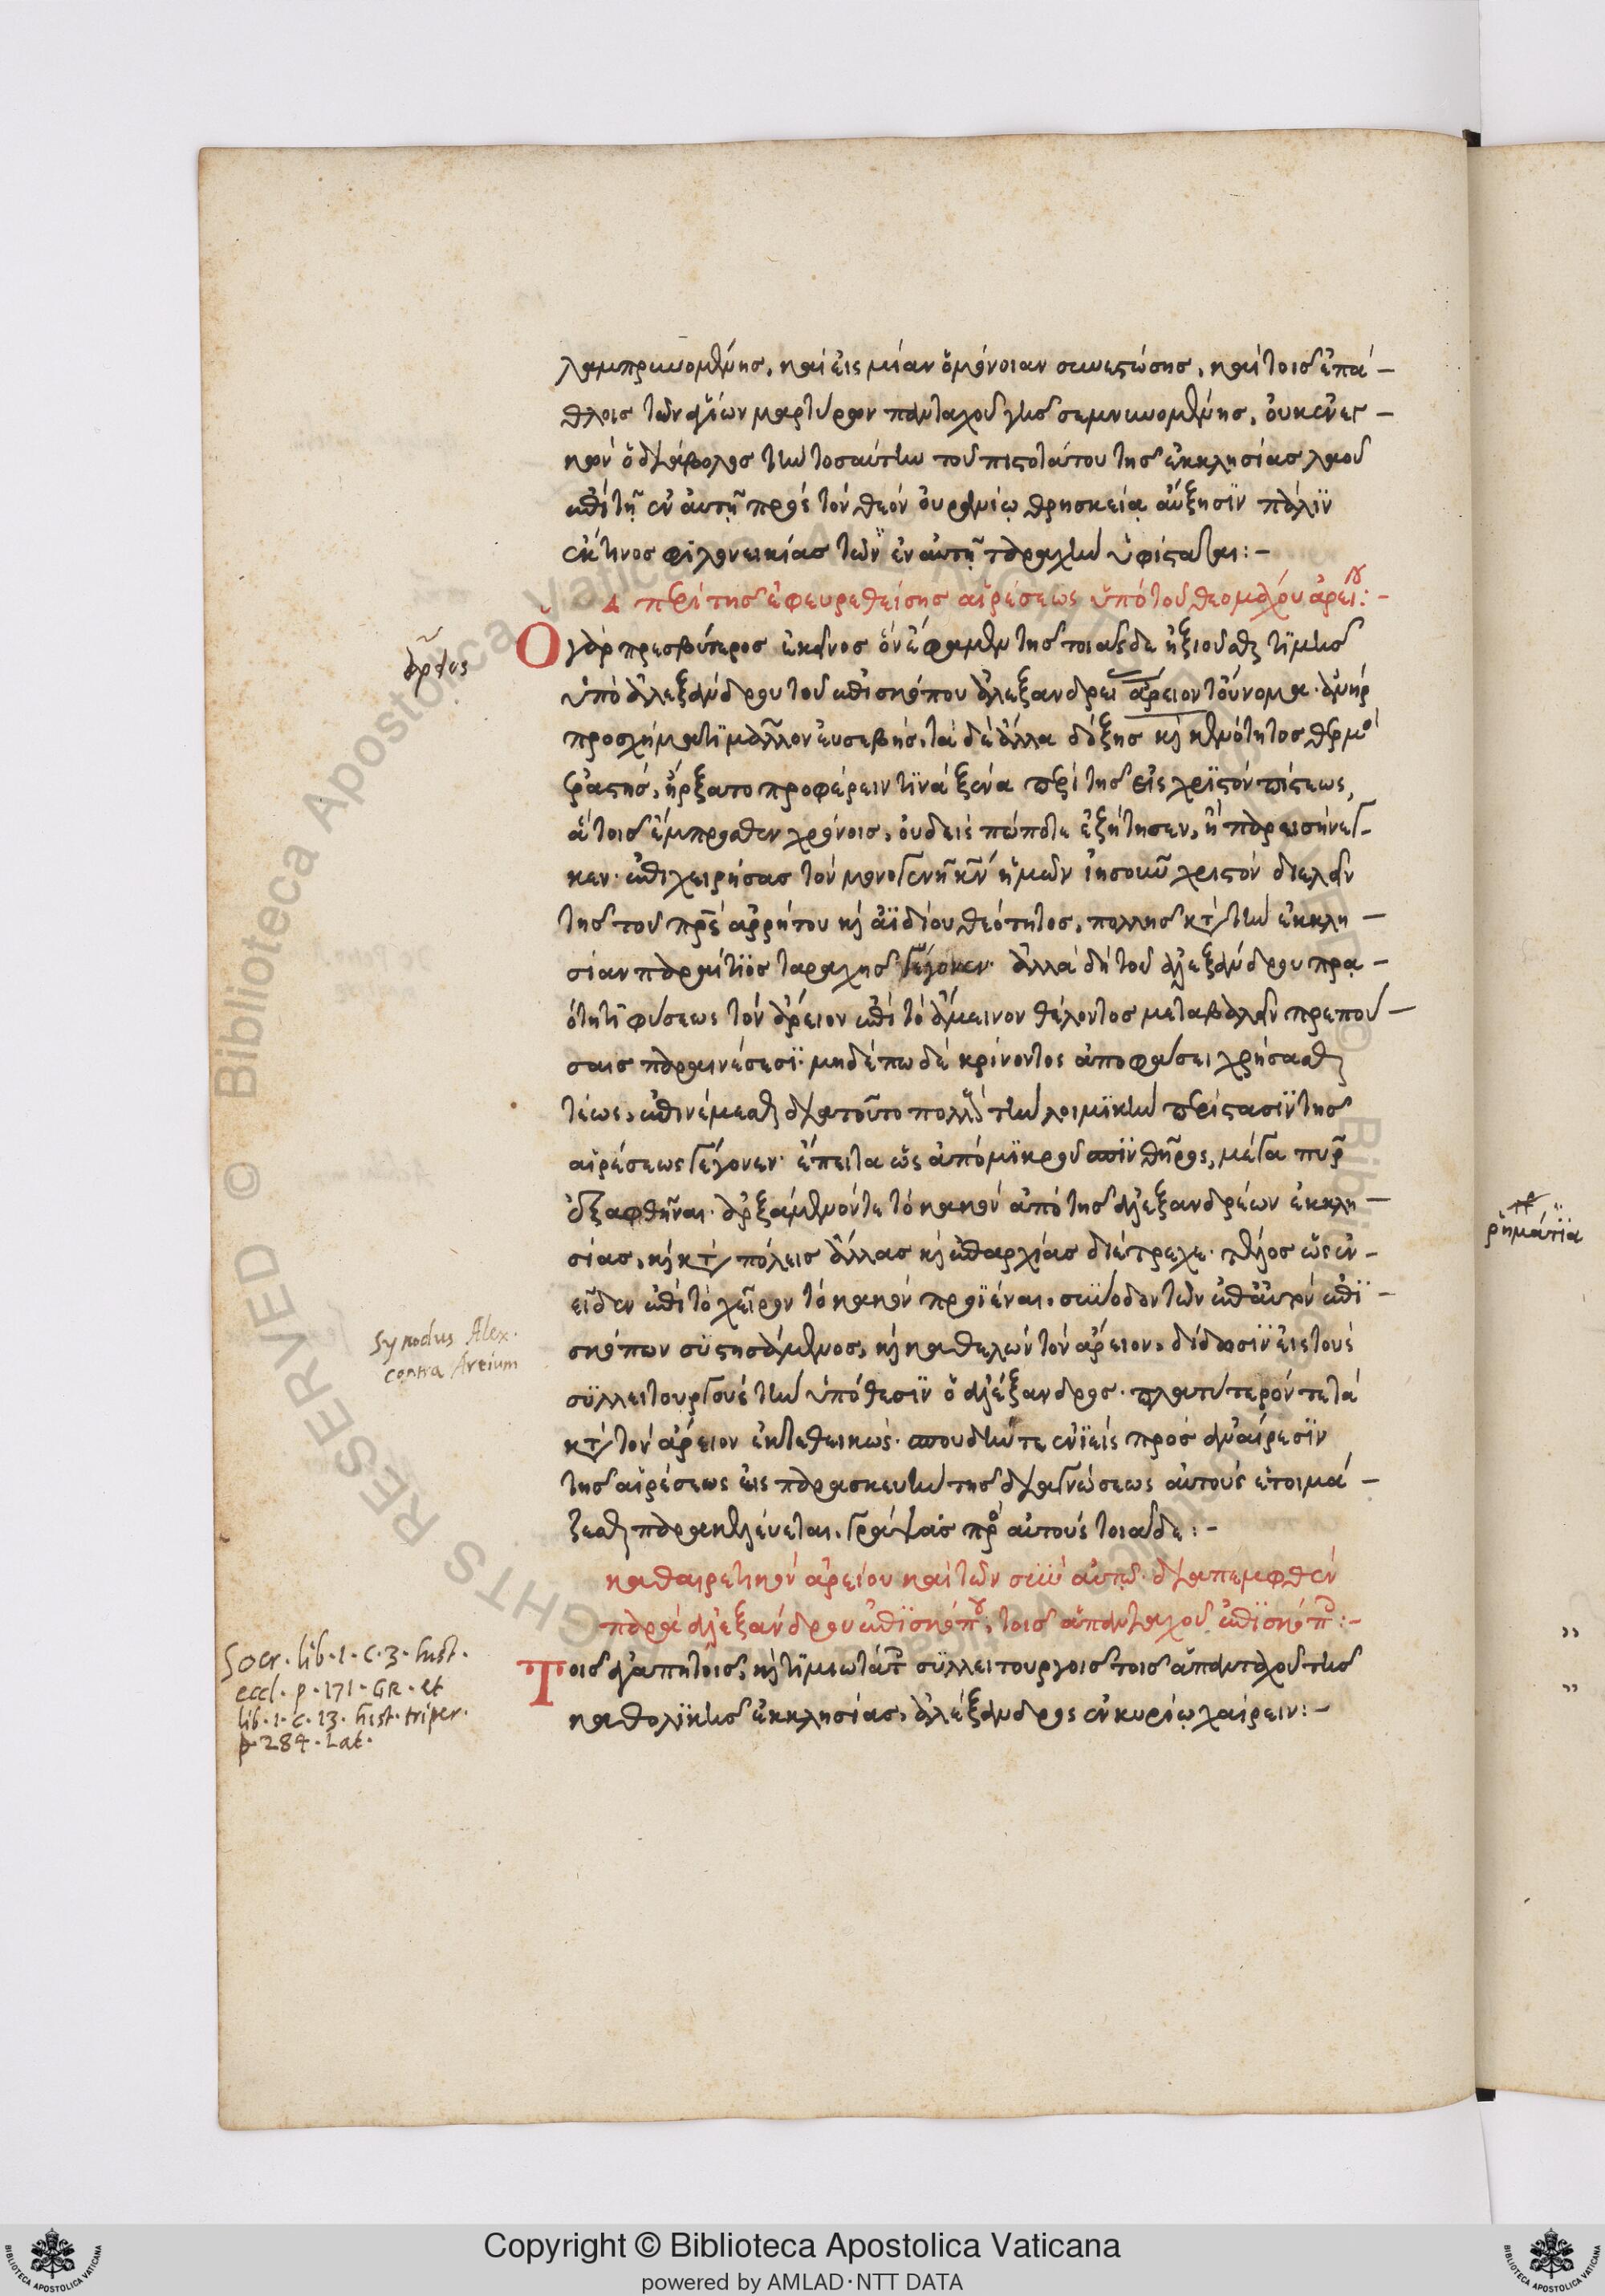 λαμπρυνομένης, καὶ εἰς μίαν ὁμόνοιαν συνεστώσης, καὶ τοῖς ἐπά-
θλοις τῶν ἁγίων μαρτύρων πανταχοῦ γῆς σεμνυνομένης, οὐκ ἐνεγ-
κὼν ὁ διάβολος τὴν τοσαύτην τοῦ πιστοτάτου τῆς ἐκκλησίας λαοῦ
ἐπὶ τῇ ἐν αὐτῇ πρὸς τὸν θεὸν οὐρανίῳ θρησκείᾳ αὔξησϊν πάλϊν
ἔκ τινος φιλονεικίας τῶν ἐν αὐτῇ ταραχὴν ὑφίσταται:-
Δ περὶ τῆς ἐφευρεθείσης αἱρέσεως ὑπὸ τοῦ θεομάχου ἀρείου:-
Ὁ γὰρ πρεσβύτερος ἐκεῖνος ὃν ἔφαμεν τῆς τοιᾶσδε ἠξιοῦσθαι τϊμῆς
ὑπὸ ἀλεξάνδρου τοῦ ἐπισκόπου ἀλεξανδρεί ἄρειον τοὔνομα· ἀνὴρ
προσχήματϊ μᾶλλον εὐσεβής, τὰ δὲ ἄλλα δόξης καὶ κενότητος θερμὸ
ἐραστής, ἤρξατο προφέρειν τϊνὰ ξένα περὶ τῆς εἰς χρϊστὸν πίστεως,
ἃ τοῖς ἔμπροσθεν χρόνοις, οὐδεὶς πώποτε ἐξήτησεν, ἢ παρεισήνεγ-
κεν· ἐπιχειρήσας τὸν μονογενῆ κν̄ ἡμῶν ἰησοῦν χριστὸν διελεῖν
τῆς τοῦ πρ̄ς ἀρρήτου καὶ ἀϊδίου θεότητος, πολλῆς κατὰ τὴν ἐκκλη-
σίαν παραίτϊος ταραχῆς γέγονεν· ἀλλὰ δὴ τοῦ ἀλεξάνδρου πρα-
ότητϊ φύσεως τὸν ἄρειον ἐπὶ τὸ ἄμεινον θέλοντος μεταβαλεῖν πρεπού-
σαις παραινέσεσϊ· μηδέπω δὲ κρίνοντος ἀποφάσει χρήσασθαι
τέως, ἐπινέμεσθαι διατοῦτο πολλοὺς τὴν λοιμϊκὴν περίστασϊν τῆς
αἱρέσεως γέγονεν· ἔπειτα ὡς ἀπὸ μϊκροῦ σπϊνθῆρος, μέγα πυρ
ἐξαφθῆναι· ἀρξάμενόν τε τὸ κακὸν ἀπὸ τῆς ἀλεξανδρέων ἐκκλη-
σίας, καὶ κατὰ πόλεις ἄλλας καὶ ἐπαρχίας διέτρεχε· τέλος ὡς ἐν-
εῖδεν ἐπὶ τὸ χεῖρον τὸ κακὸν προϊέναι, σύνοδον τῶν ἐπ᾽ αὐτὸν ἐπϊ-
σκόπων συστησάμενος, καὶ καθελὼν τὸν ἄρειον, δίδωσϊν εἰς τοὺς
συλλειτουργοὺς τὴν ὑπόθεσϊν ὁ ἀλέξανδρος· πλατύτερόν τε τὰ
κατὰ τὸν ἄρειον ἐκτεθεικώς· σπουδήν τε ἐνϊεὶς πρὸς ἀναίρεσϊν
τῆς αἱρέσεως εἰς παρασκευὴν τῆς διαγνώσεως αὐτοὺς ἑτοιμά-
ζεσθαι παρακελεύεται, γράψας πρὸ αὐτοὺς τοιάδε:-
καθαιρετικὸν ἀρείου καὶ τῶν σὺν αὐτῷ· διαπεμφθὲν
παρὰ ἀλεξάνδρου ἐπϊσκόπου, τοῖς ἁπανταχοῦ ἐπϊσκόπ:-
Τοῖς ἀγαπητοῖς, καὶ τϊμιωτάτ συλλειτουργοῖς τοῖς ἁπανταχοῦ τῆς
καθολϊκῆς ἐκκλησίας, ἀλέξανδρος ἐν κυρίῳ χαίρειν:-
Synodus Alex.
contra Areium
Socr. lib. 1. c. 3. hist.
eccl. p. 171. GR. et
lib. 1. c. 13. hist. triper.
p 284. Lat.
ῥημάτϊα
Copyright © Biblioteca Apostolica Vaticana
powered by AMLAD·NTT DATA